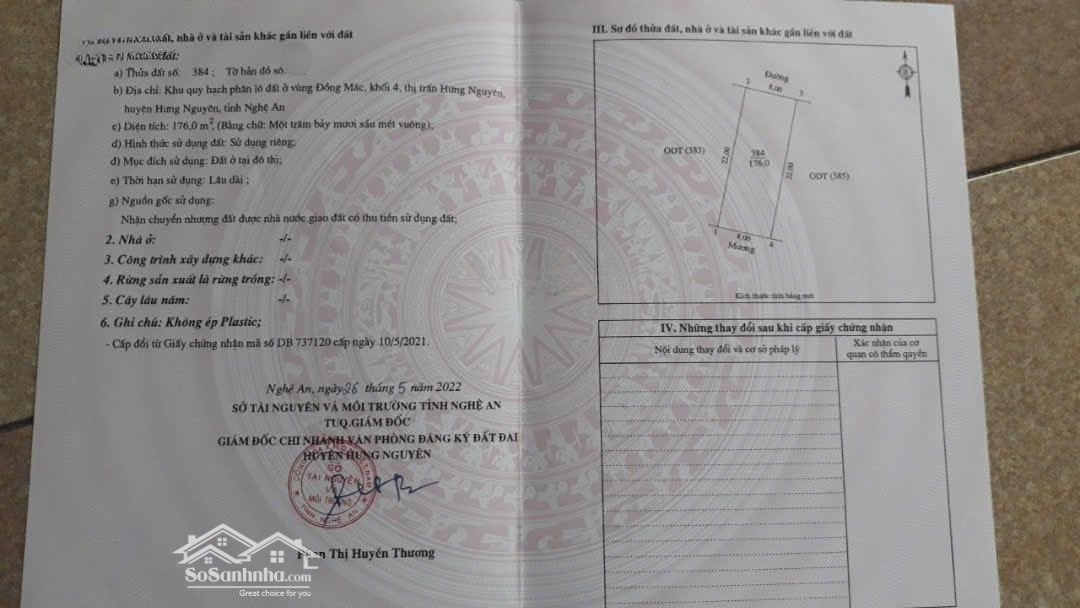 đất, nhà ở và tài sản khác gắn liền với đất
đất:
a) Thửa đất số: 384 ; Tờ bản đồ số.
b) Địa chỉ: Khu quy hạch phân lô đất ở vùng Đồng Mác, khối 4, thị trấn Hưng Nguyên,
huyện Hưng Nguyên, tỉnh Nghệ An
c) Diện tích: 176,0 m², (Bằng chữ: Một trăm bảy mươi sáu mét vuông);
d) Hình thức sử dụng đất: Sử dụng riêng;
đ) Mục đích sử dụng: Đất ở tại đô thị;
e) Thời hạn sử dụng: Lâu dài ;
g) Nguồn gốc sử dụng:
Nhận chuyển nhượng đất được nhà nước giao đất có thu tiền sử dụng đất;
2. Nhà ở: -/-
3. Công trình xây dựng khác: -/-
4. Rừng sản xuất là rừng trồng: -/-
5. Cây lâu năm: -/-
6. Ghi chú: Không ép Plastic;
- Cấp đổi từ Giấy chứng nhận mã số DB 737120 cấp ngày 10/5/2021.
Nghệ An, ngày 26 tháng 5 năm 2022
SỞ TÀI NGUYÊN VÀ MÔI TRƯỜNG TỈNH NGHỆ AN
TUQ.GIÁM ĐỐC
GIÁM ĐỐC CHI NHÁNH VĂN PHÒNG ĐĂNG KÝ ĐẤT ĐAI
HUYỆN HƯNG NGUYÊN
SỞ
TÀI NGUYÊN
VÀ
MÔI TRƯỜNG
TỈNH NGHỆ AN
Phan Thị Huyền Thương
SoSanhnha.com
Great choice for you
III. Sơ đồ thửa đất, nhà ở và tài sản khác gắn liền với đất
B
Đường
2
8,00
3
ODT (383)
22,00
384
176,0
22,00
ODT (385)
1
8,00
4
Mương
Kích thước tính bằng mét
IV. Những thay đổi sau khi cấp giấy chứng nhận
Nội dung thay đổi và cơ sở pháp lý
Xác nhận của cơ
quan có thẩm quyền